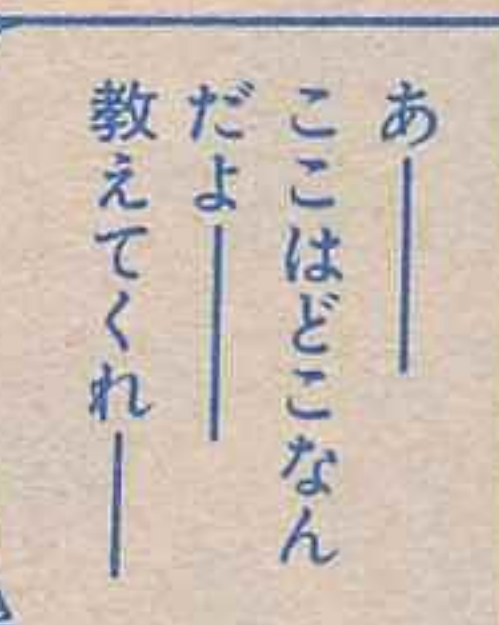 あ――
ここはどこなん
だよ――
教えてくれ――